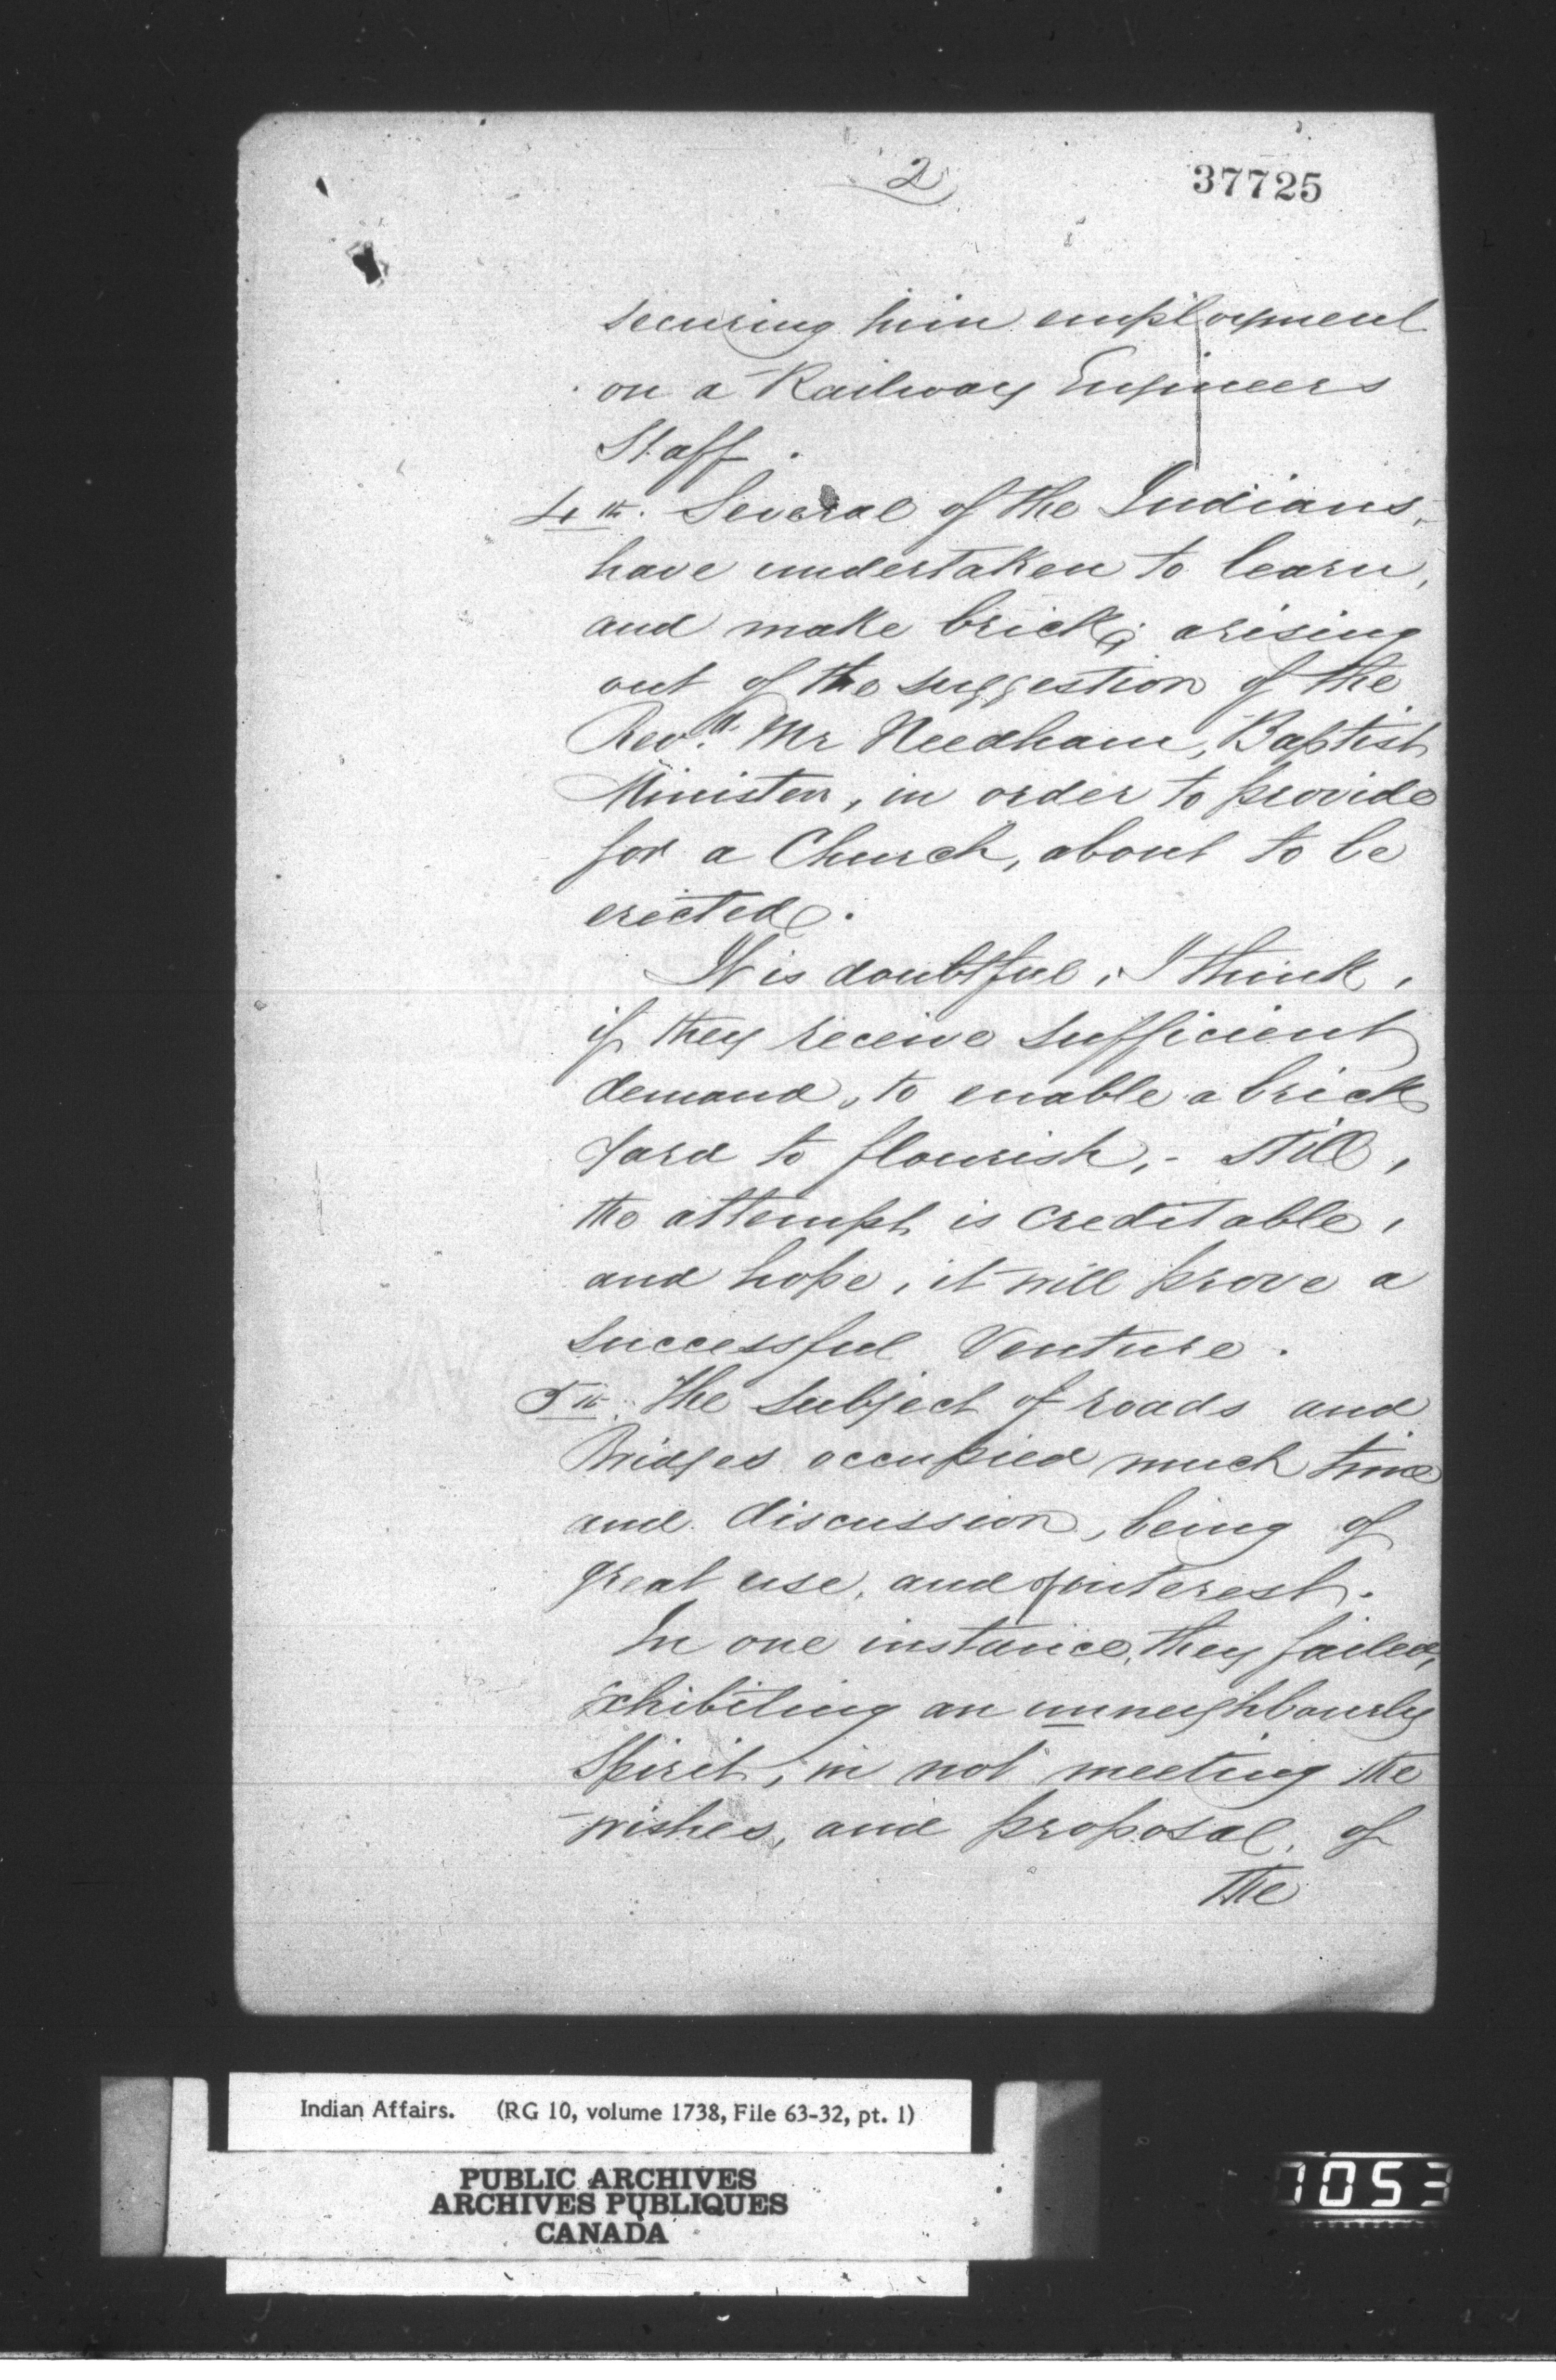 2
37725
securing him employment
on a Railway Engineers
Staff.
4th. Several of the Indians,
have undertaken to learn,
and make brick; arising
out of the suggestion of the
Revd. Mr Needham, Baptist
Minister, in order to provide
for a Church, about to be
erected.
It is doubtful, I think,
if they receive sufficient
demand, to enable a brick
Yard to flourish,- still,
the attempt is creditable,
and hope, it will prove a
successful Venture.
5th. The subject of roads and
Bridges occupied much time
and discussion, being of
great use, and of interest.
In one instance, they failed,
exhibiting an unneighbourly
Spirit, in not meeting the
wishes, and proposal, of
the
Indian Affairs. (RG 10, volume 1738, File 63-32, pt. 1)
PUBLIC ARCHIVES
ARCHIVES PUBLIQUES
CANADA
1053